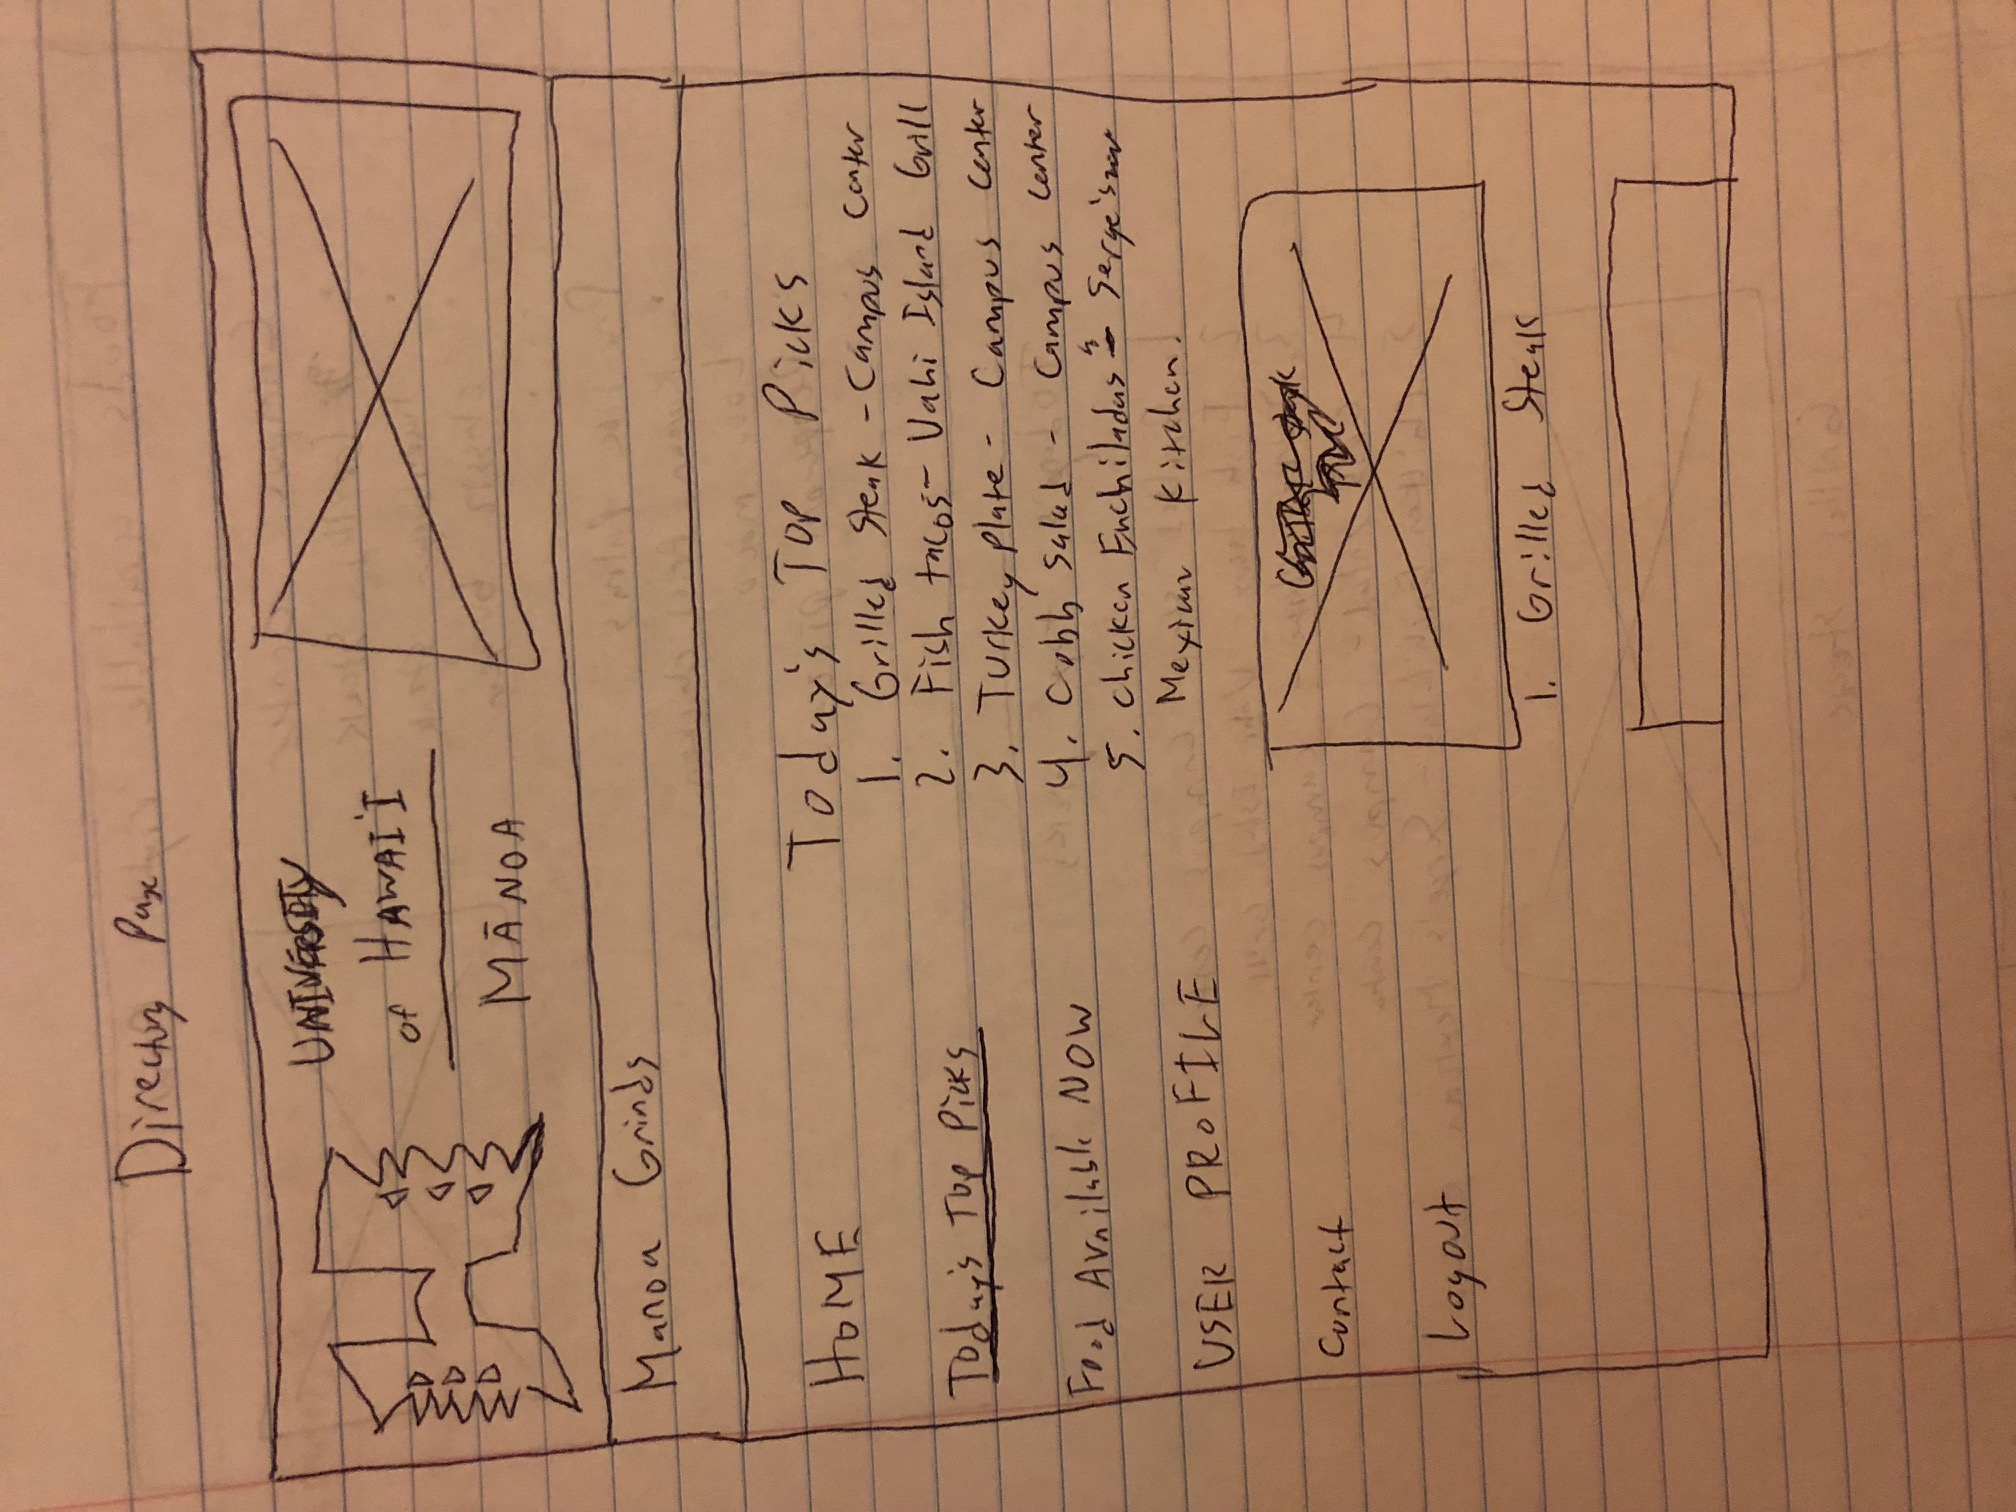 Directory Page
UNIVERSITY
of HAWAI'I
MĀNOA
Manoa Grinds
HOME
Today's Top Picks
Food Available NOW
USER PROFILE
Contact
Logout
Today's TOP Picks
1. Grilled Steak - Campus Center
2. Fish tacos - Uahi Island Grill
3. Turkey plate - Campus center
4. Cobb salad - Campus center
5. Chicken Enchiladas - Serge's
Mexican Kitchen.
1. Grilled Steak